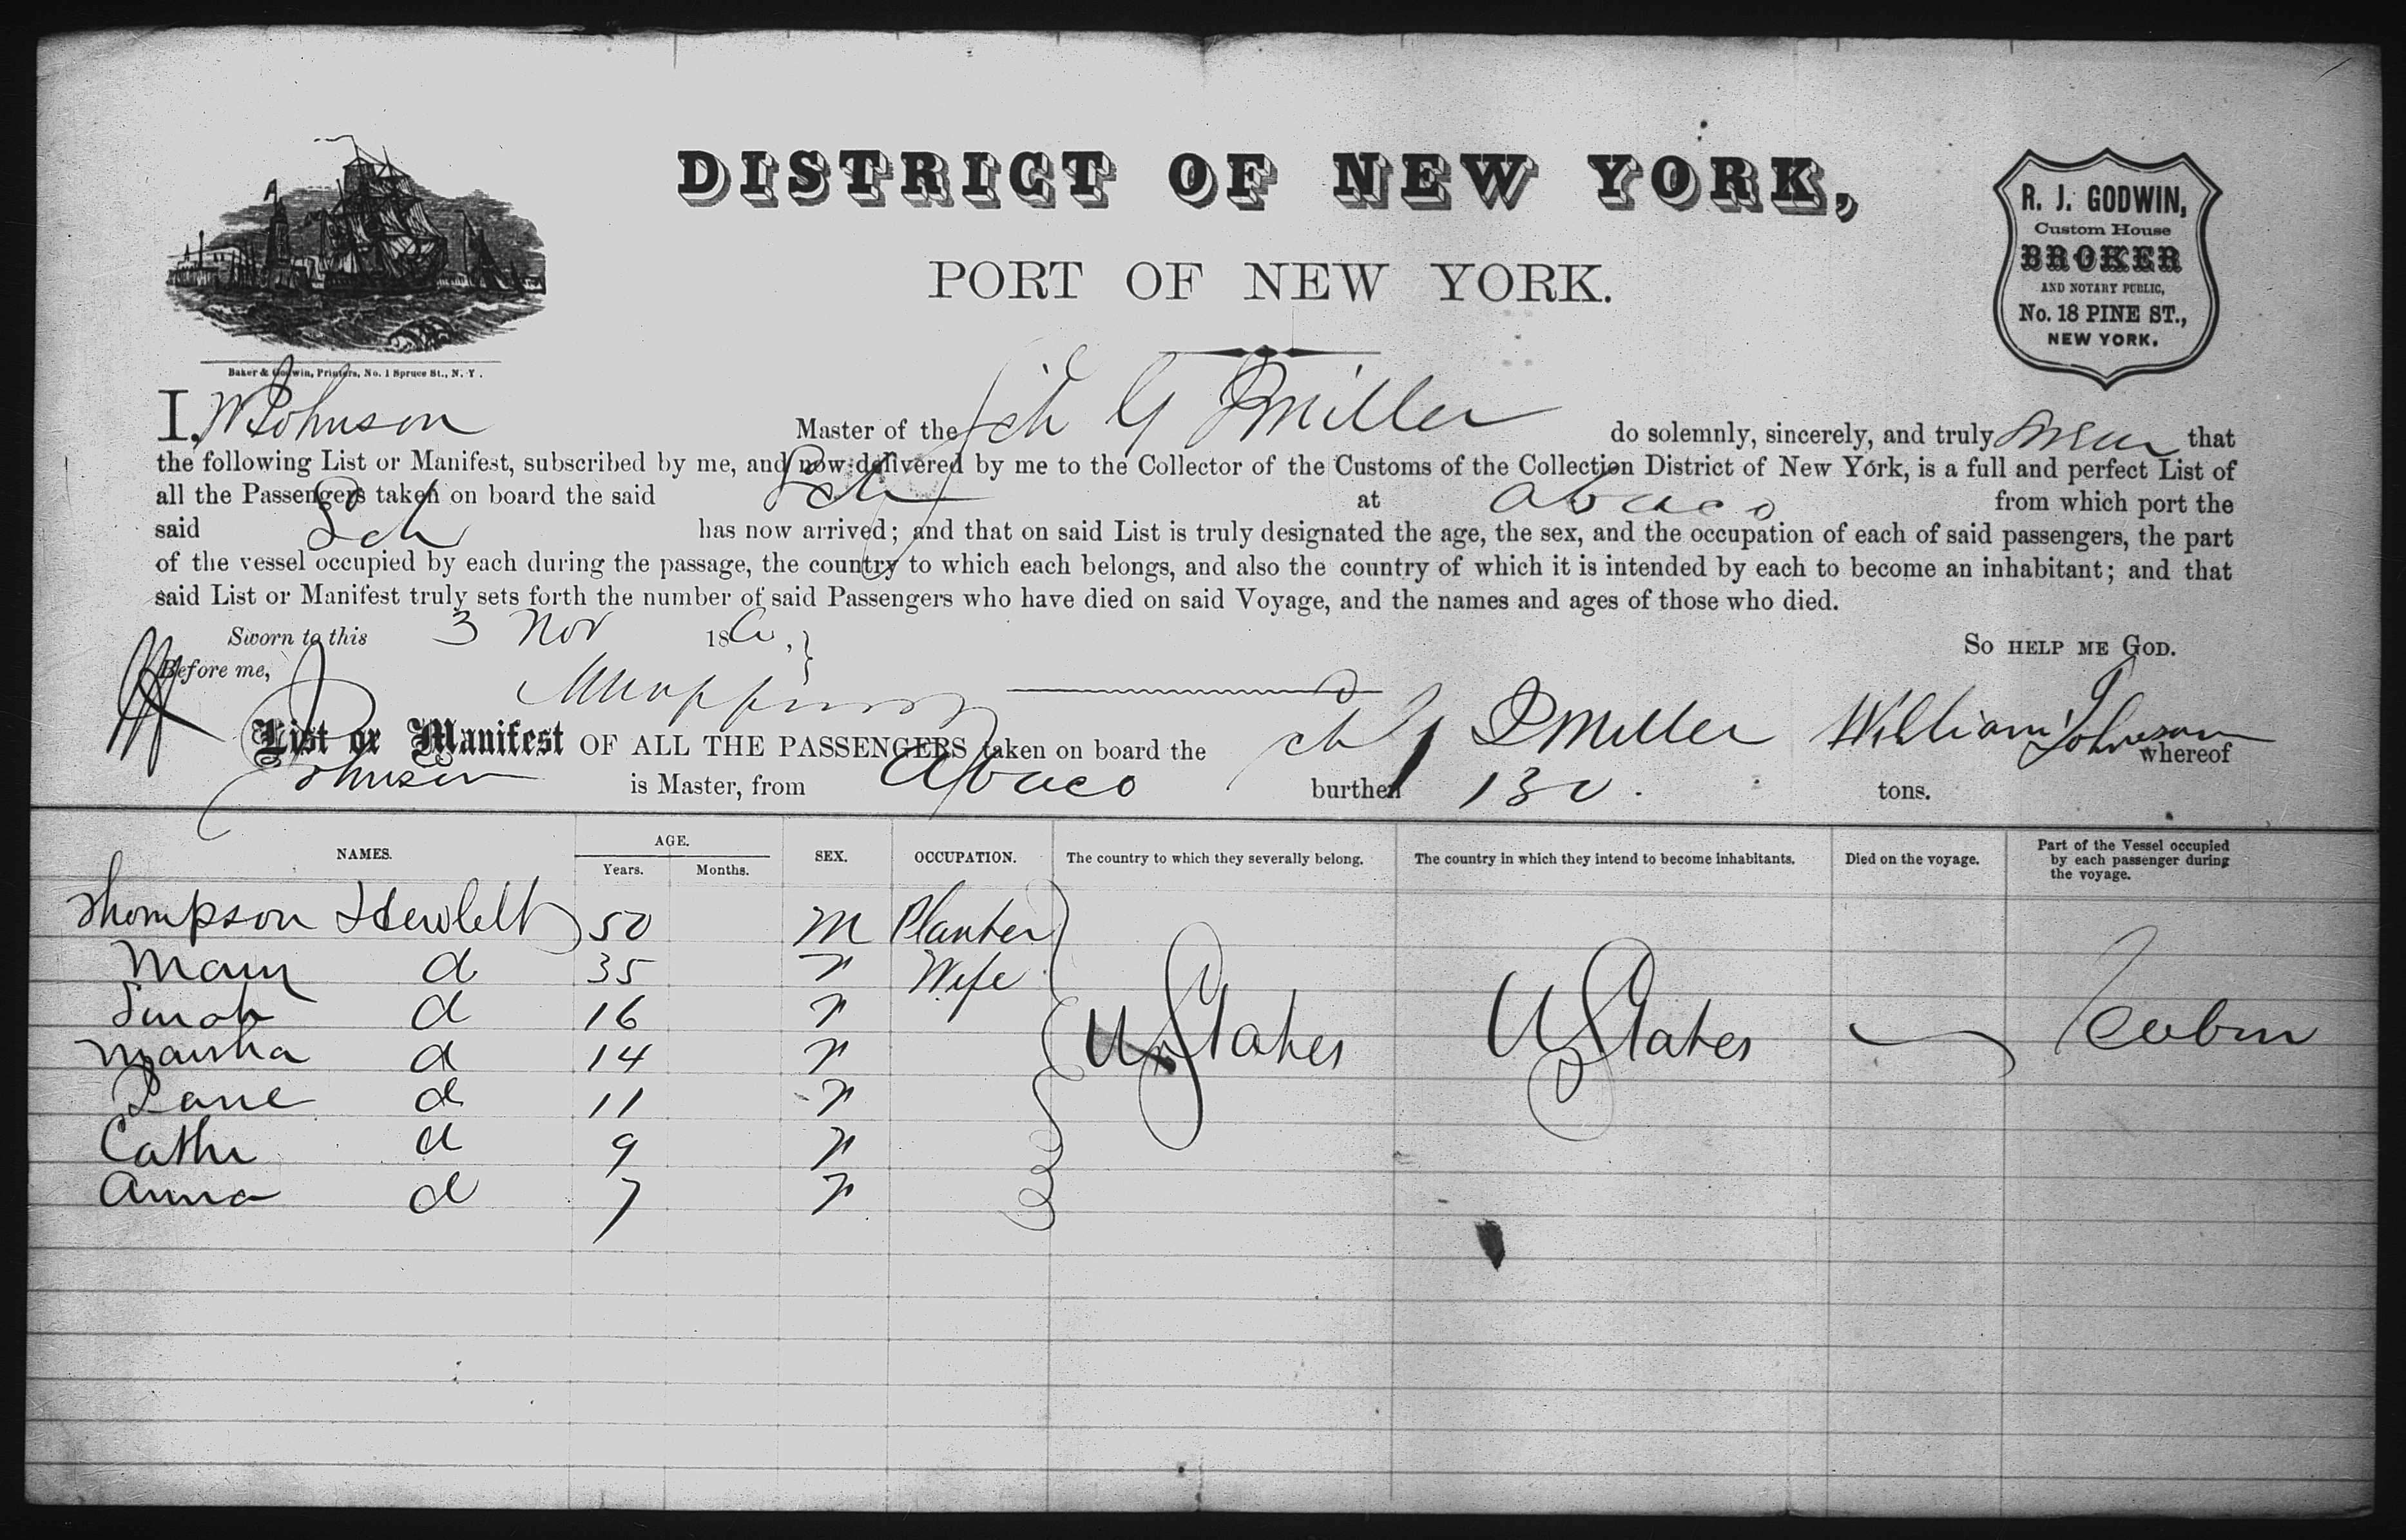 DISTRICT OF NEW YORK,
PORT OF NEW YORK.
R. J. GODWIN,
Custom House
BROKER
AND NOTARY PUBLIC,
No. 18 PINE ST.,
NEW YORK.
Baker & Godwin, Printers, No. 1 Spruce St., N. Y.
I, W Johnson Master of the Sch G J Miller do solemnly, sincerely, and truly swear that
the following List or Manifest, subscribed by me, and now delivered by me to the Collector of the Customs of the Collection District of New York, is a full and perfect List of
all the Passengers taken on board the said Sch at Abaco from which port the
said Sch has now arrived; and that on said List is truly designated the age, the sex, and the occupation of each of said passengers, the part
of the vessel occupied by each during the passage, the country to which each belongs, and also the country of which it is intended by each to become an inhabitant; and that
said List or Manifest truly sets forth the number of said Passengers who have died on said Voyage, and the names and ages of those who died.
Sworn to this 3 Nov 186 , So HELP ME GOD.
Before me,
William Johnson
List or Manifest OF ALL THE PASSENGERS taken on board the Sch G J Miller whereof
Johnson is Master, from Abaco burthen 130 tons.
NAMES. AGE. Years. Months. SEX. OCCUPATION. The country to which they severally belong. The country in which they intend to become inhabitants. Died on the voyage. Part of the Vessel occupied by each passenger during the voyage.
Thompson Hewlett 50 M Planter
Mary d 35 F Wife
Sarah d 16 F
Martha d 14 F U States U States Cabin
Jane d 11 F
Cathe d 9 F
Anna d 7 F